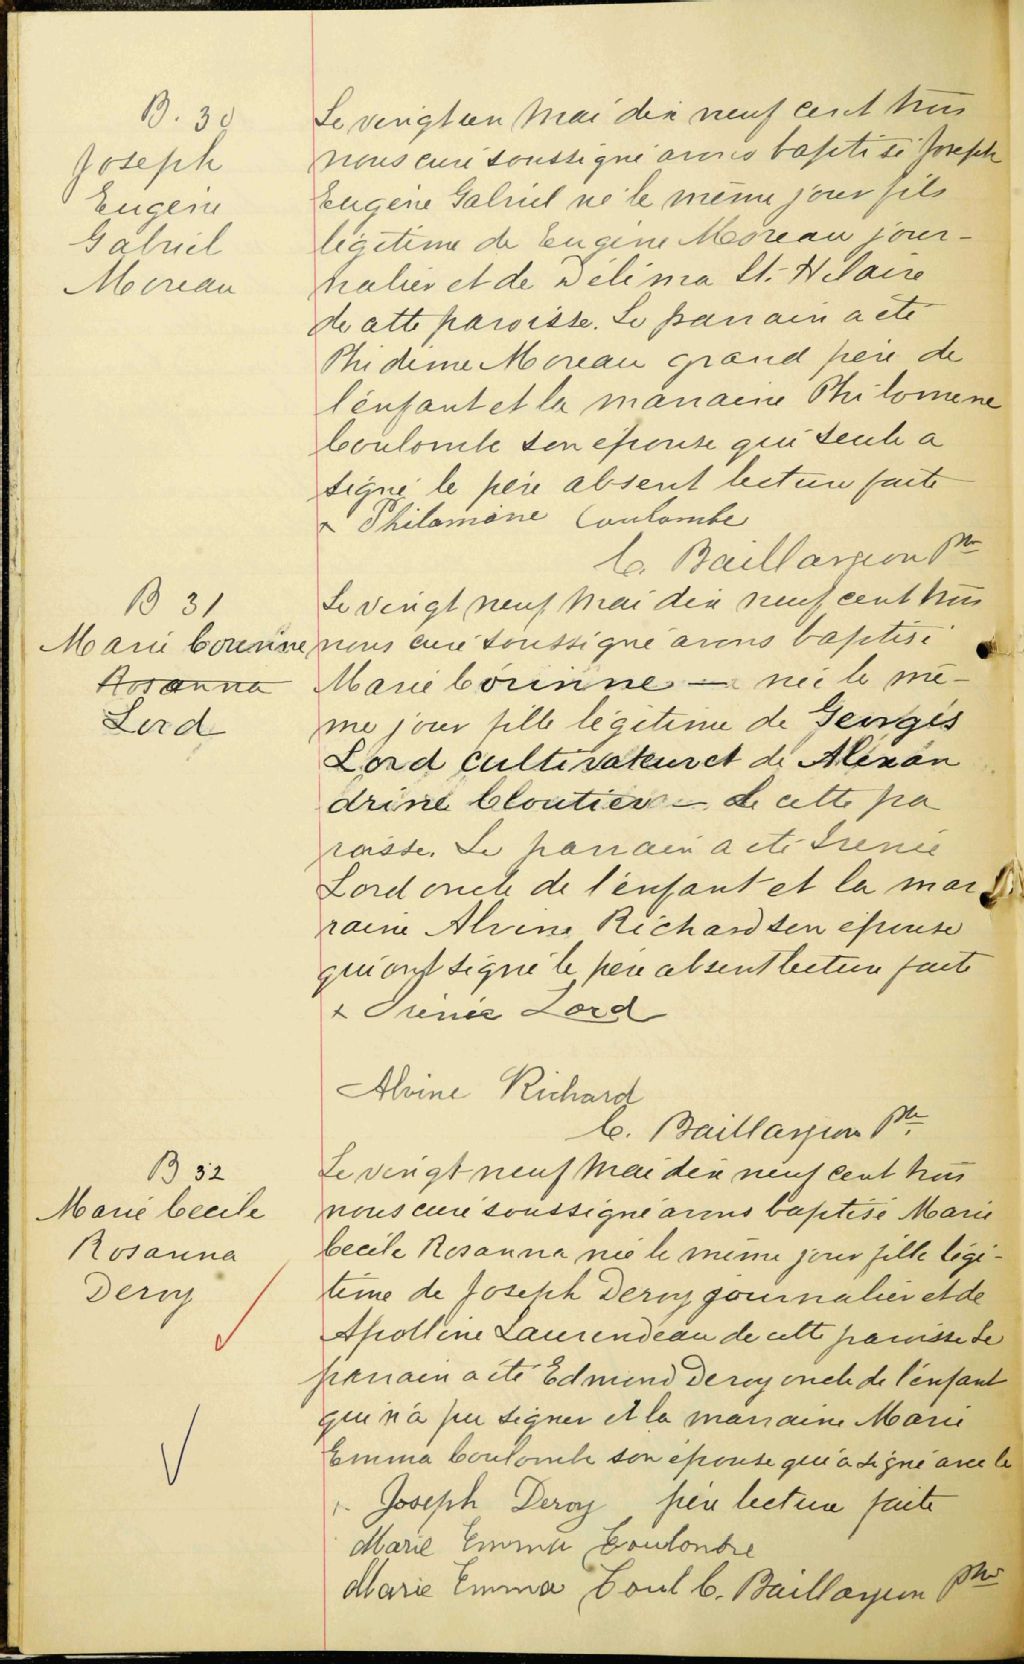 B. 30
Joseph
Eugène
Gabriel
Moreau
Le vingt un Mai dix neuf cent trois
nous curé soussigné avons baptisé Joseph
Eugène Gabriel né le même jour fils
légitime de Eugène Moreau jour-
nalier et de Délima St. Hilaire
de cette paroisse. Le parrain a été
Phidime Moreau grand père de
l'enfant et la marraine Philomène
Coulombe son épouse qui seule a
signé le père absent lecture faite
x Philomène Coulombe
C. Baillargeon Ptre
B 31
Marie Corinne
Rosanna
Lord
Le vingt neuf Mai dix neuf cent trois
nous curé soussigné avons baptisé
Marie Corinne — née le mê-
me jour fille légitime de Georges
Lord cultivateur et de Alexan
drine Cloutier — de cette pa
roisse. Le parrain a été Irenée
Lord oncle de l'enfant et la mar
raine Alvine Richard son épouse
qui ont signé le père absent lecture faite
x Irénée Lord
Alvine Richard
C. Baillargeon Ptre.
B 32
Marie Cecile
Rosanna
Deroy
Le vingt neuf Mai dix neuf cent trois
nous curé soussigné avons baptisé Marie
Cecile Rosanna née le même jour fille légi-
time de Joseph Deroy journalier et de
Apolline Laurendeau de cette paroisse Le
parrain a été Edmond Deroy oncle de l'enfant
qui n'a pu signer et la marraine Marie
Emma Coulombe son épouse qui a signé avec le
x Joseph Deroy père lecture faite
Marie Emma Coulombe
Marie Emma Coul C. Baillargeon Ptre